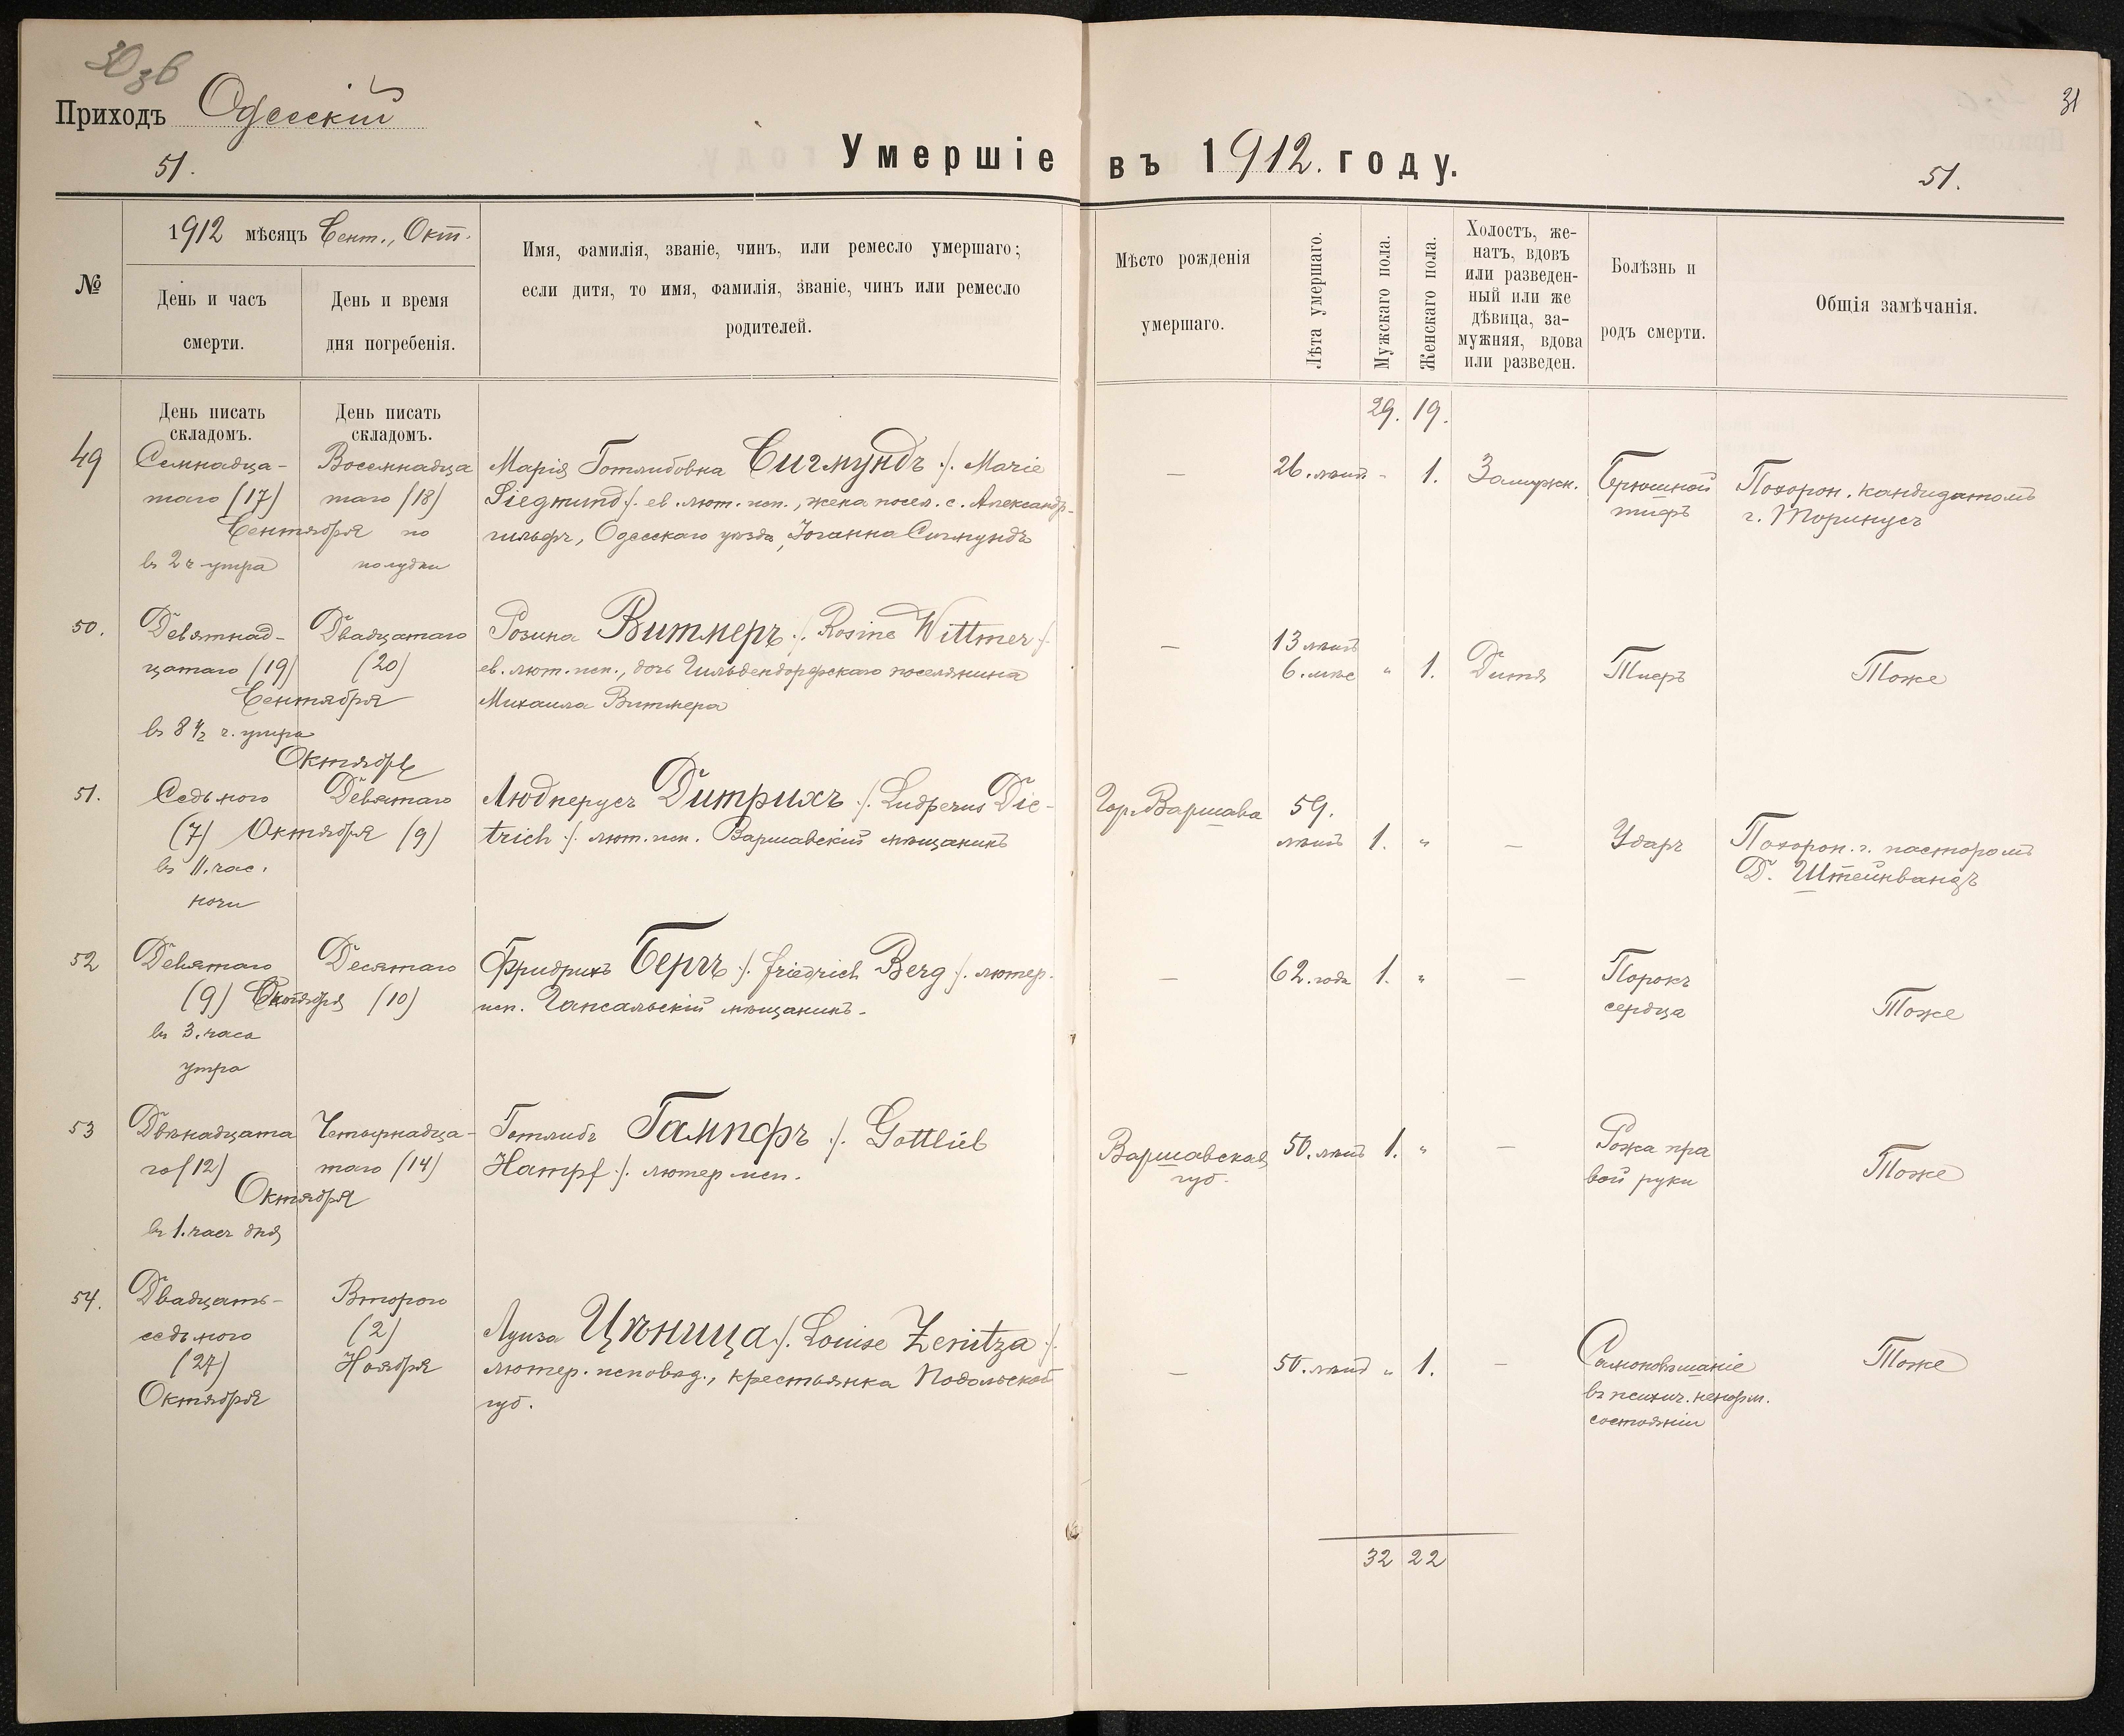 30 зв
31
Приходъ Одесскій
51.
Умершіе въ 1912. году.
51.
№
1912 мѣсяцъ Сент., Окт.
День и часъ
смерти.
День и время
дня погребенія.
Имя, фамилія, званіе, чинъ, или ремесло умершаго;
если дитя, то имя, фамилія, званіе, чинъ или ремесло
родителей.
Мѣсто рожденія
умершаго.
Лѣта умершаго.
Мужскаго пола.
Женскаго пола.
Холостъ, же-
натъ, вдовъ
или разведен-
ный или же
дѣвица, за-
мужняя, вдова
или разведен.
Болѣзнь и
родъ смерти.
Общія замѣчанія.
День писать
складомъ.
День писать
складомъ.
29. 19.
49
Семнадца-
таго (17)
Сентября
въ 2 ч утра
Восемнадца
таго (18)
по
полудни
Марія Готлибовна Сигмундъ /. Marie
Siegmund ./. ев. лют. исп., жена посел. с. Александр-
гильфъ, Одесскаго уѣзда, Іоганна Сигмундъ
—
26. лѣтъ - 1. Замужн.
Брюшной
тифъ
Похорон. кандидатомъ
г. Торинусъ
50.
Девятнад-
цатаго (19)
Сентября
въ 8 ½ ч. утра
Двадцатаго
(20)
Розина Витмеръ ./. Rosine Wittmer ./.
ев. лют. исп., дочь Гильдендорфскаго поселянина
Михаила Витмера
—
13 лѣтъ
6. мѣс " 1. Дитя
Тифъ
Тоже
Октябрь
51.
Седьмого
(7) Октября (9)
въ 11. час.
ночи
Девятаго
Людгерусъ Дитрихъ ./. Ludgerus Die-
trich ./. лют. исп. Варшавскій мѣщанинъ
Гор. Варшава
59.
лѣтъ 1. " —
Ударъ
Похорон. г. пасторомъ
Д. Штейнвандъ
52
Девятаго
(9) Октября (10)
въ 3. часа
утра
Десятаго
Фридрихъ Бергъ ./. Friedrich Berg ./. лютер.
исп. Гапсальскій мѣщанинъ.
—
62. года 1. " —
Порокъ
сердца
Тоже
53
Двѣнадцата
го (12)
Октября
въ 1. часъ дня
Четырнадца-
таго (14)
Готлибъ Гампфъ ./. Gottlieb
Hampf ./. лютер исп.
Варшавская
губ.
50. лѣтъ 1. " —
Рожа пра
вой руки
Тоже
54.
Двадцать-
седьмого
(27)
Октября
Второго
(2)
Ноября
Луиза Цѣница ./. Louise Zenitza ./.
лютер. исповѣд., крестьянка Подольской
губ.
—
50. лѣтъ " 1. —
Самоповѣшаніе
въ психич. ненорм.
состояніи
Тоже
32 22